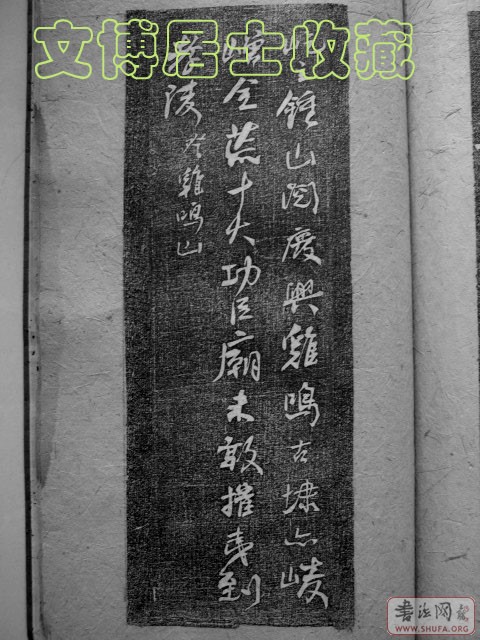 文博居士收藏
鍾山閱廢興雞鳴古埭亦崚
嶒全荒十大功臣廟未敢摧夷到
孝陵 登雞鳴山
書法网
WWW.SHUFA.ORG